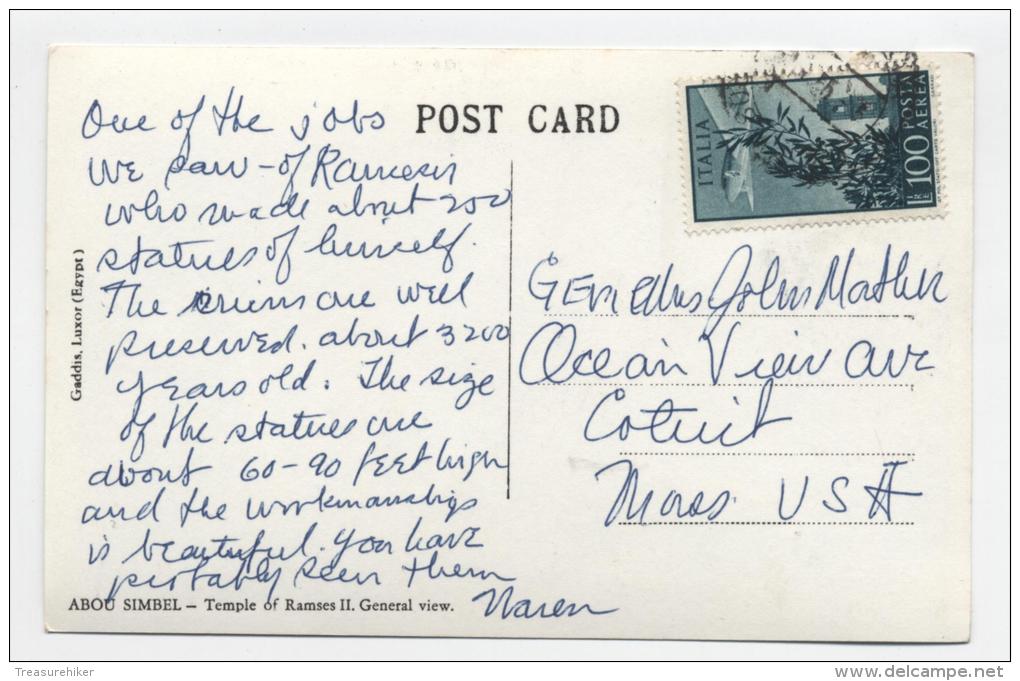 One of the jobs
we saw - of Ramesis
who made about 200
statues of himself.
The ruins are well
preserved. about 3200
years old. The size
of the statues are
about 60-90 feet high
and the workmanship
is beautiful. You have
probably seen them
Waren
POST CARD
Gaddis, Luxor (Egypt)
ABOU SIMBEL — Temple of Ramses II. General view.
ITALIA
POSTA
AEREA
LIRE 100
Gen &Mrs John Mather
Ocean View Ave
Cotuit
Mass. USA
Treasurehiker
www.delcampe.net